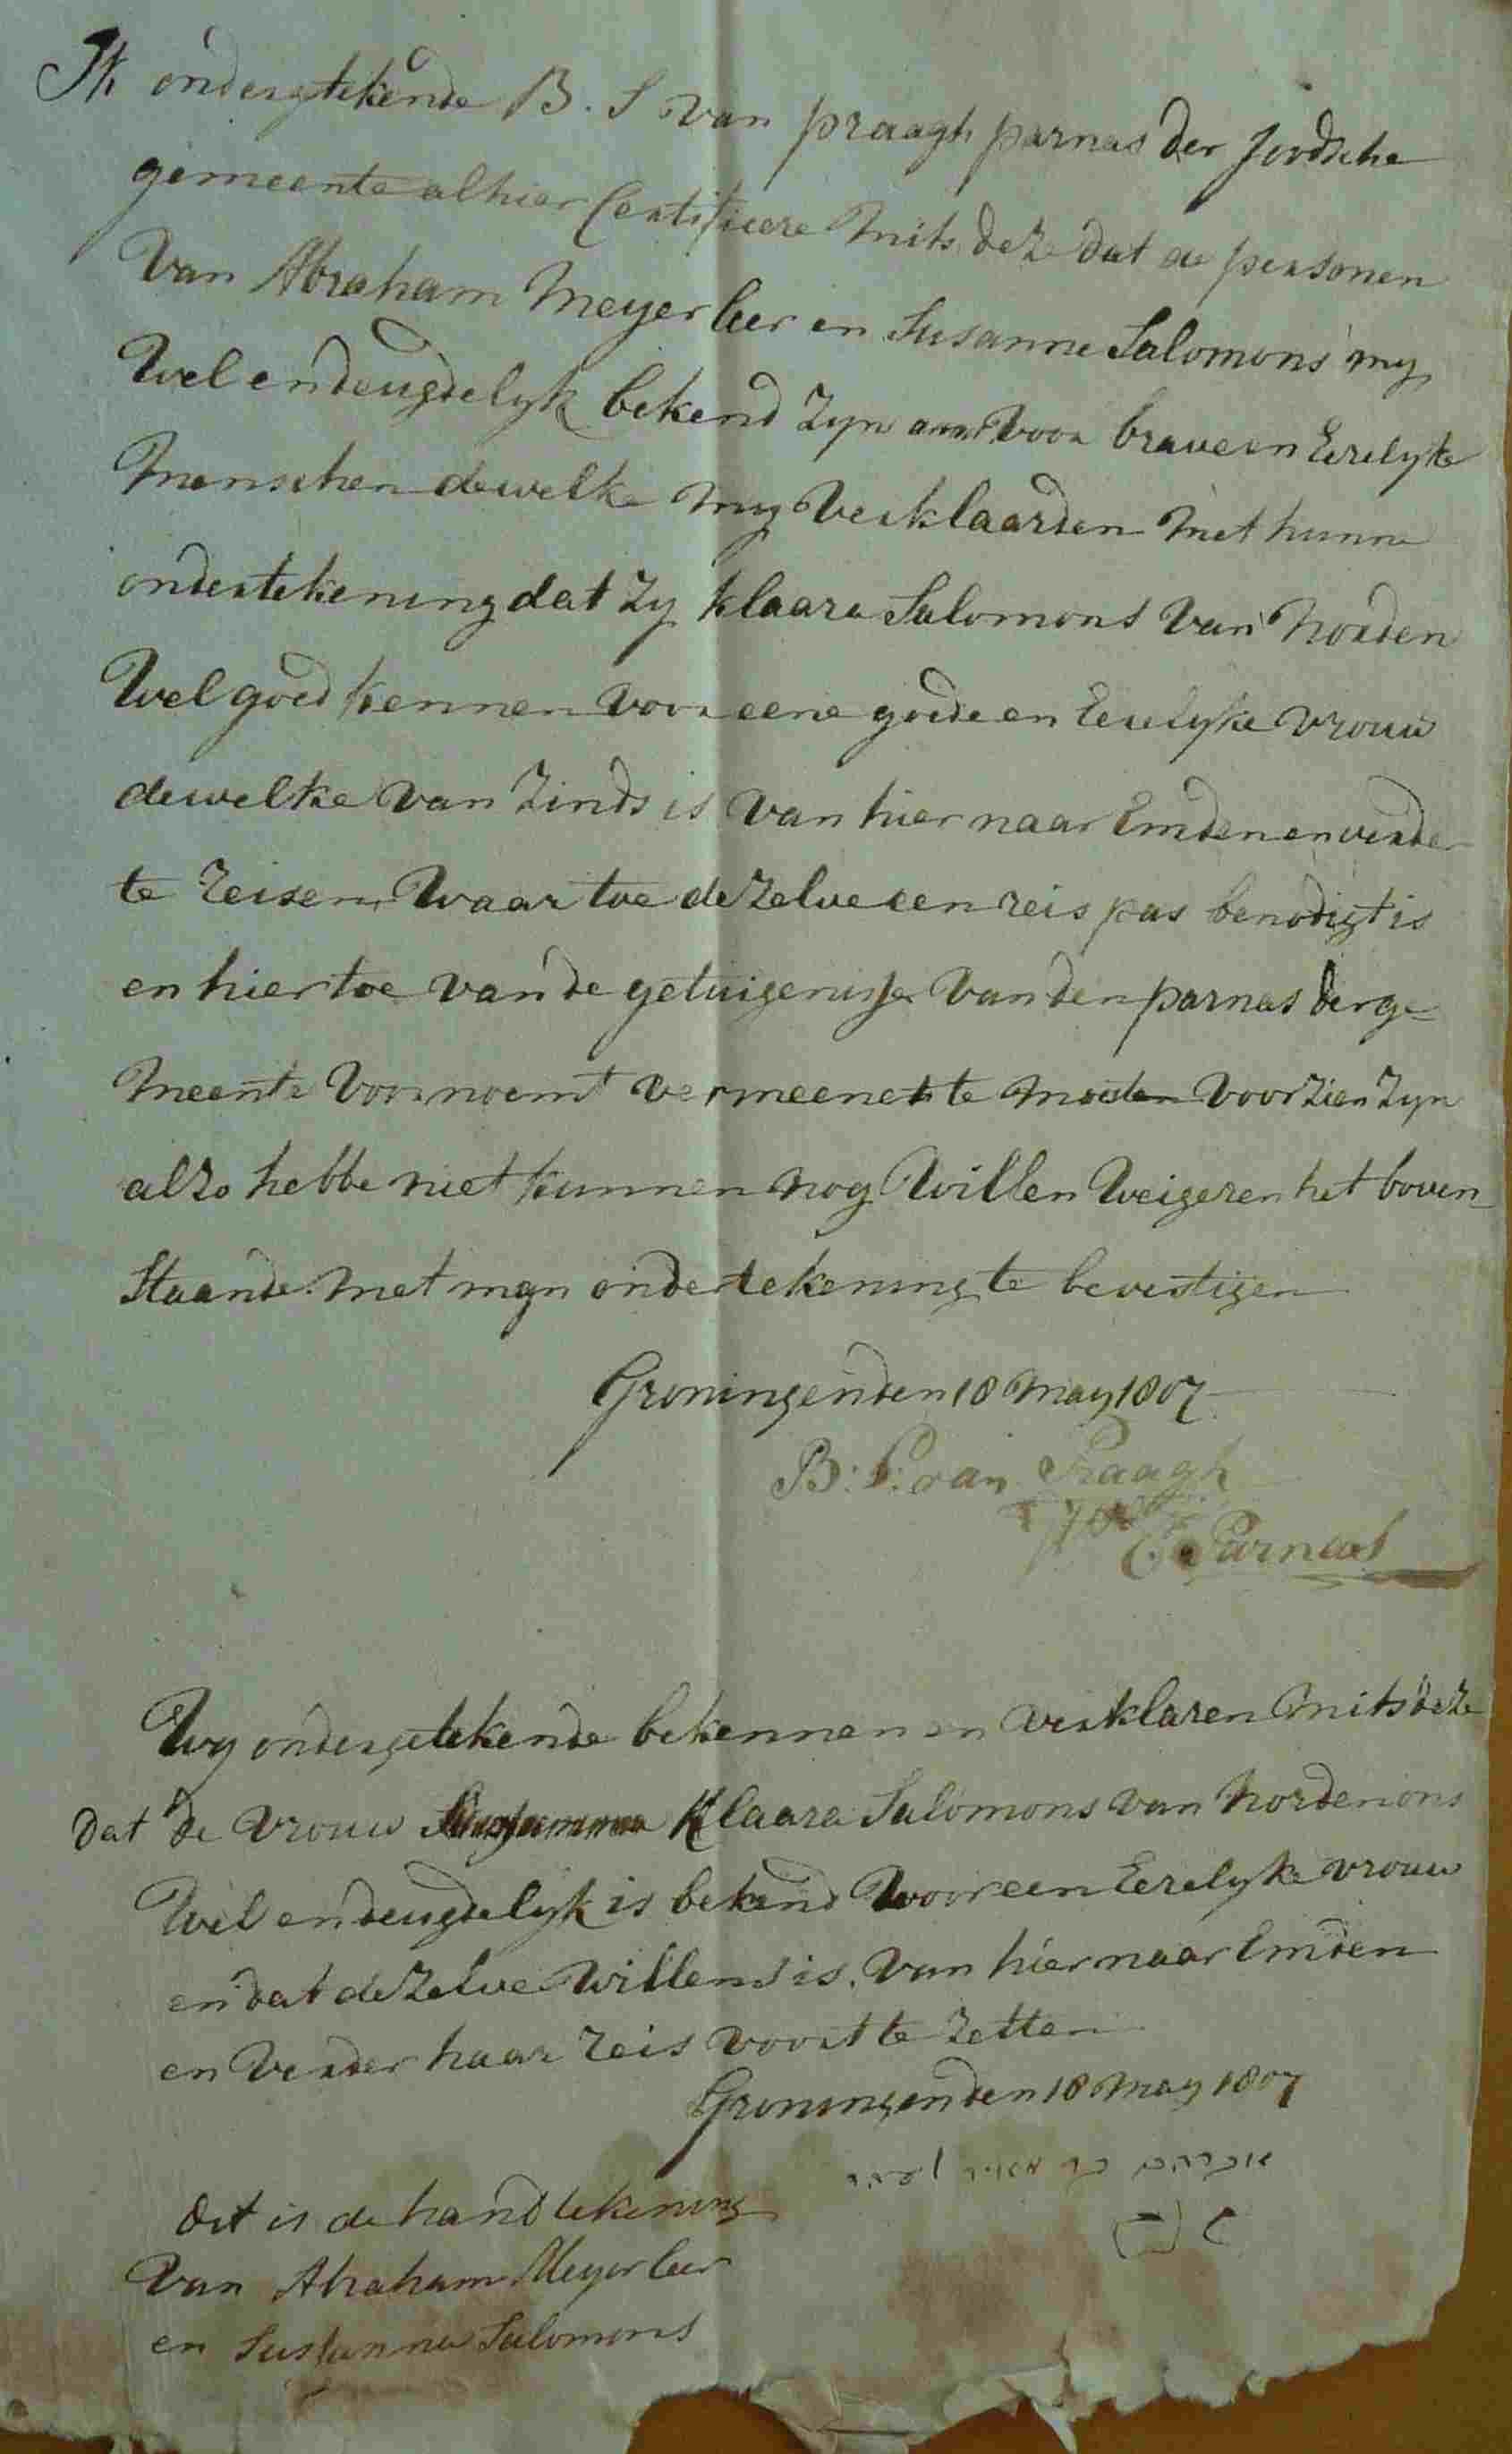 Ik ondergtekende B. S van praagh parnas der Joodsche
gemeente alhier Certificere mits deze dat de personen
Van Abraham Meyer leer en Susanne Salomons my
Wel en deugdelyk bekend Zyn voor brave en Eerelyke
Menschen dewelke my Verklaarden met hunne
ondertekening dat Zy Klaara Salomons van Norden
Wel goed kennen voor eene goede en Eerelyke vrouw
dewelke van Zinds is van hier naar Emden en verder
te reisen, Waar toe de Zelve een reis pas benodigt is
en hier toe van de getuigenisse van den parnas der ge=
meente Voornoemt vermeenet te moeten voorzien Zyn
alzo hebbe niet kunnen nog Willen Weigeren het boven
Staande met myn ondertekening te bevestigen
Groningen den 18 May 1807
B: S: van Praagh
Parnas
Wy ondergetekende bekennen en verklaren mits deze
dat de vrouw Klaara Salomons van Norden ons
Wel en deugdelyk is bekend voor een Eerelyke vrouw
en dat de Zelve Willens is, van hier naar Emden
en Verder haar reis voort te Zetten
Groningen den 18 May 1807
אברהם בר מאיר
dit is de handtekening
Van Abraham Meyer leer
en Susanna Salomons